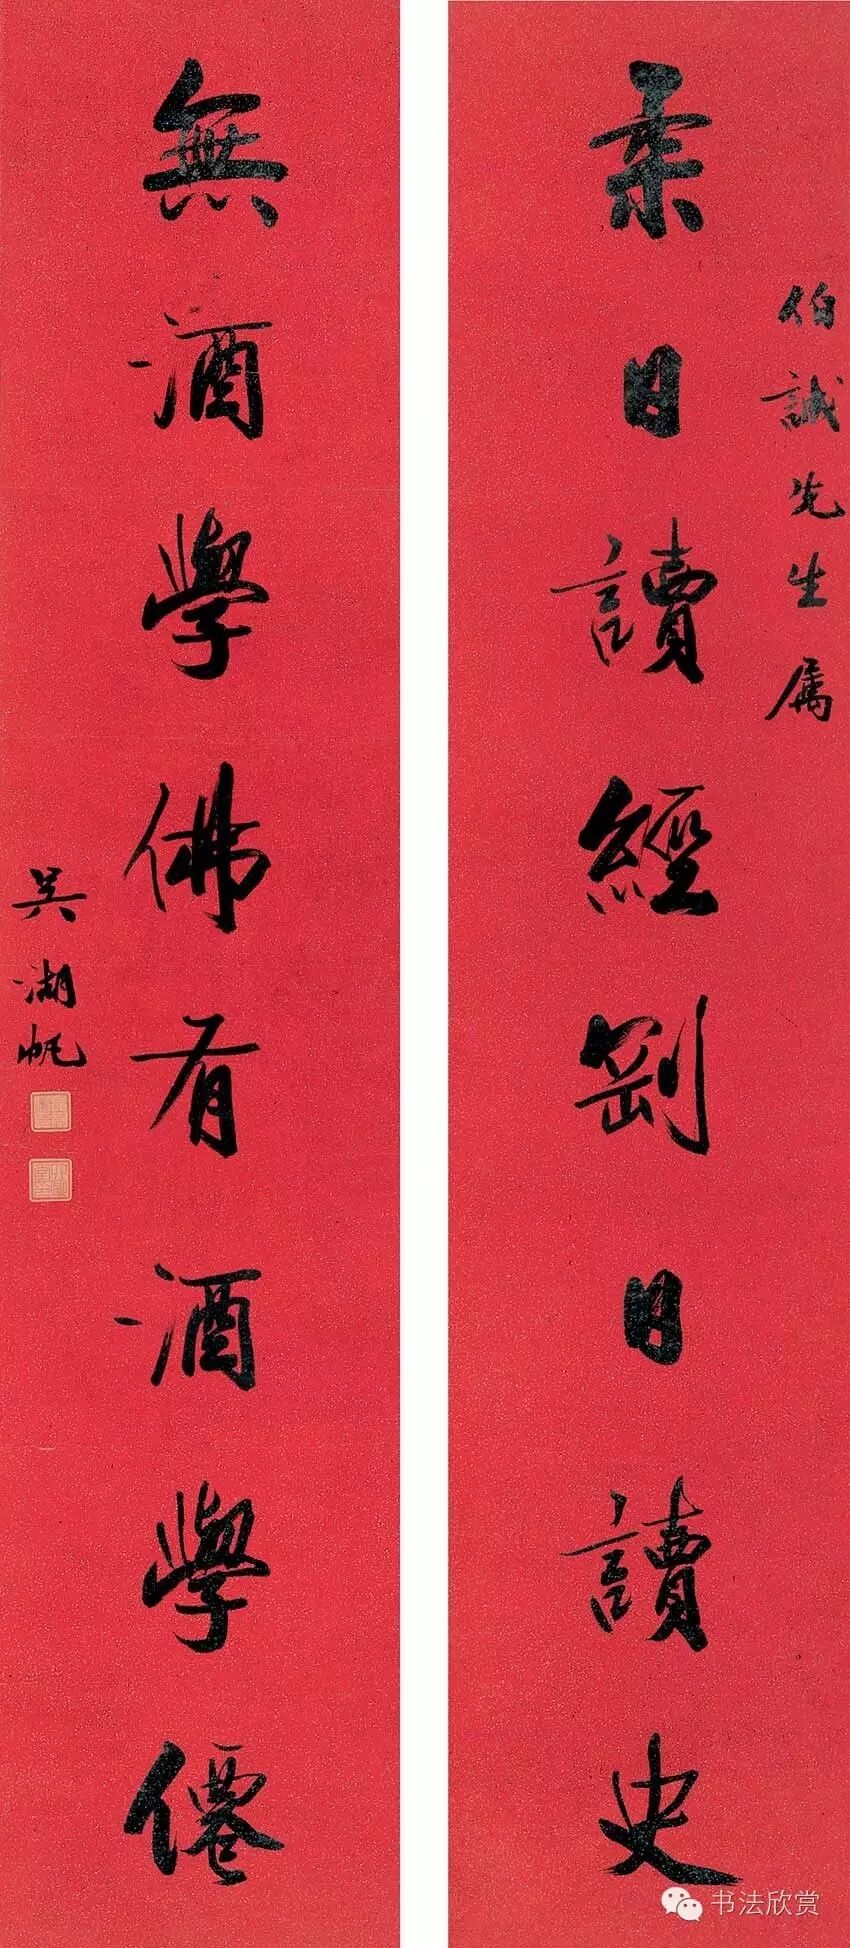 伯誠先生属
柔日讀經剛日讀史
無酒學佛有酒學僊
吳湖帆
书法欣赏